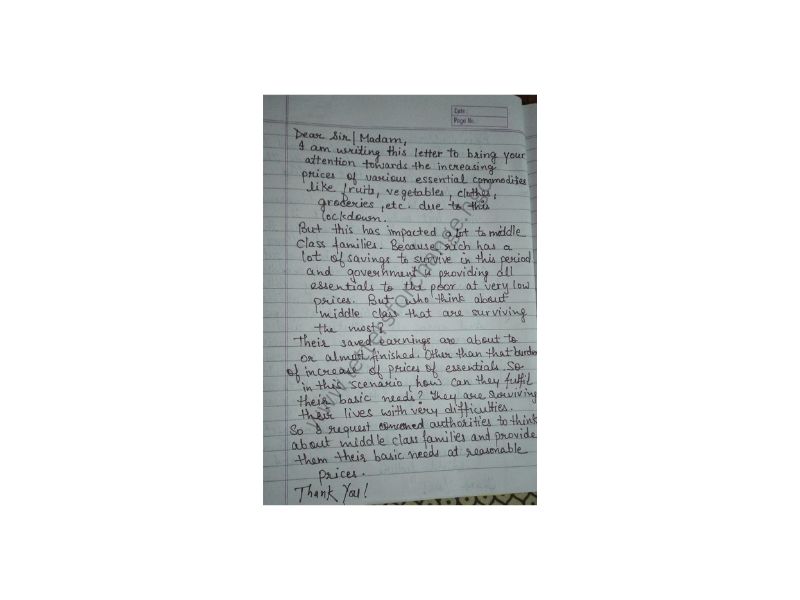 Date:
Page No.
Dear Sir/Madam,
I am writing this letter to bring your
attention towards the increasing
prices of various essential commodities
like fruits, vegetables, clothes,
groceries, etc. due to this
lockdown.
But this has impacted a lot to middle
class families. Because rich has a
lot of savings to survive in this period
and government is providing all
essentials to the poor at very low
prices. But who think about
middle class that are surviving
the most?
Their saved earnings are about to
or almost finished. Other than that burden
of increase of prices of essentials. So
in this scenario, how can they fulfil
their basic needs? They are surviving
their lives with very difficulties.
So I request concerned authorities to think
about middle class families and provide
them their basic needs at reasonable
prices.
Thank You!